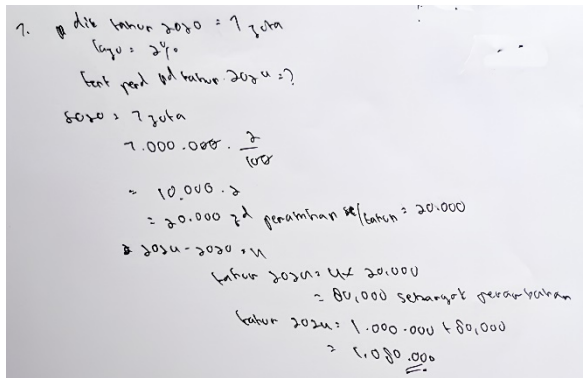 1. dik tahun 2020 = 1 juta
laju = 2%
tent pend pd tahun 2024 = ?
2020 = 1 juta
1.000.000 . 2/100
= 10.000 . 2
= 20.000 jd penambahan /tahun = 20.000
2024 - 2020 = 4
tahun 2024 = 4 x 20.000
= 80.000 sebanyak penambahan
tahun 2024 = 1.000.000 + 80.000
= 1.080.000